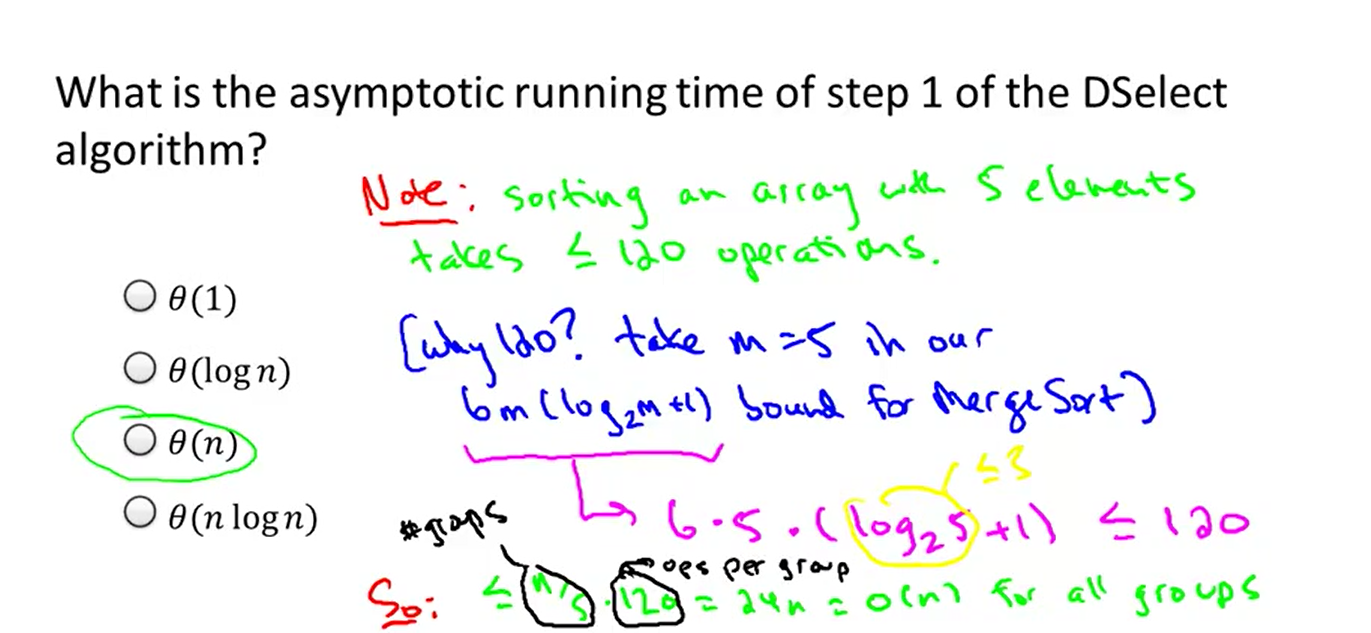 What is the asymptotic running time of step 1 of the DSelect
algorithm?
Note: sorting an array with 5 elements
takes ≤ 120 operations.
θ(1)
[why 120? take m=5 in our
θ(log n)
6m(log₂m+1) bound for MergeSort]
θ(n)
≤3
θ(n log n)
#groups
6·5·(log₂5+1) ≤ 120
ops per group
So: ≤ n/5 · 120 = 24n = O(n) for all groups